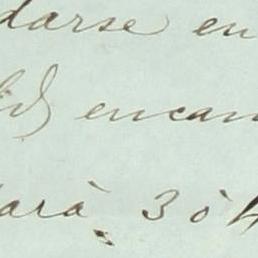 darse en
encam
ará 3 ó 4